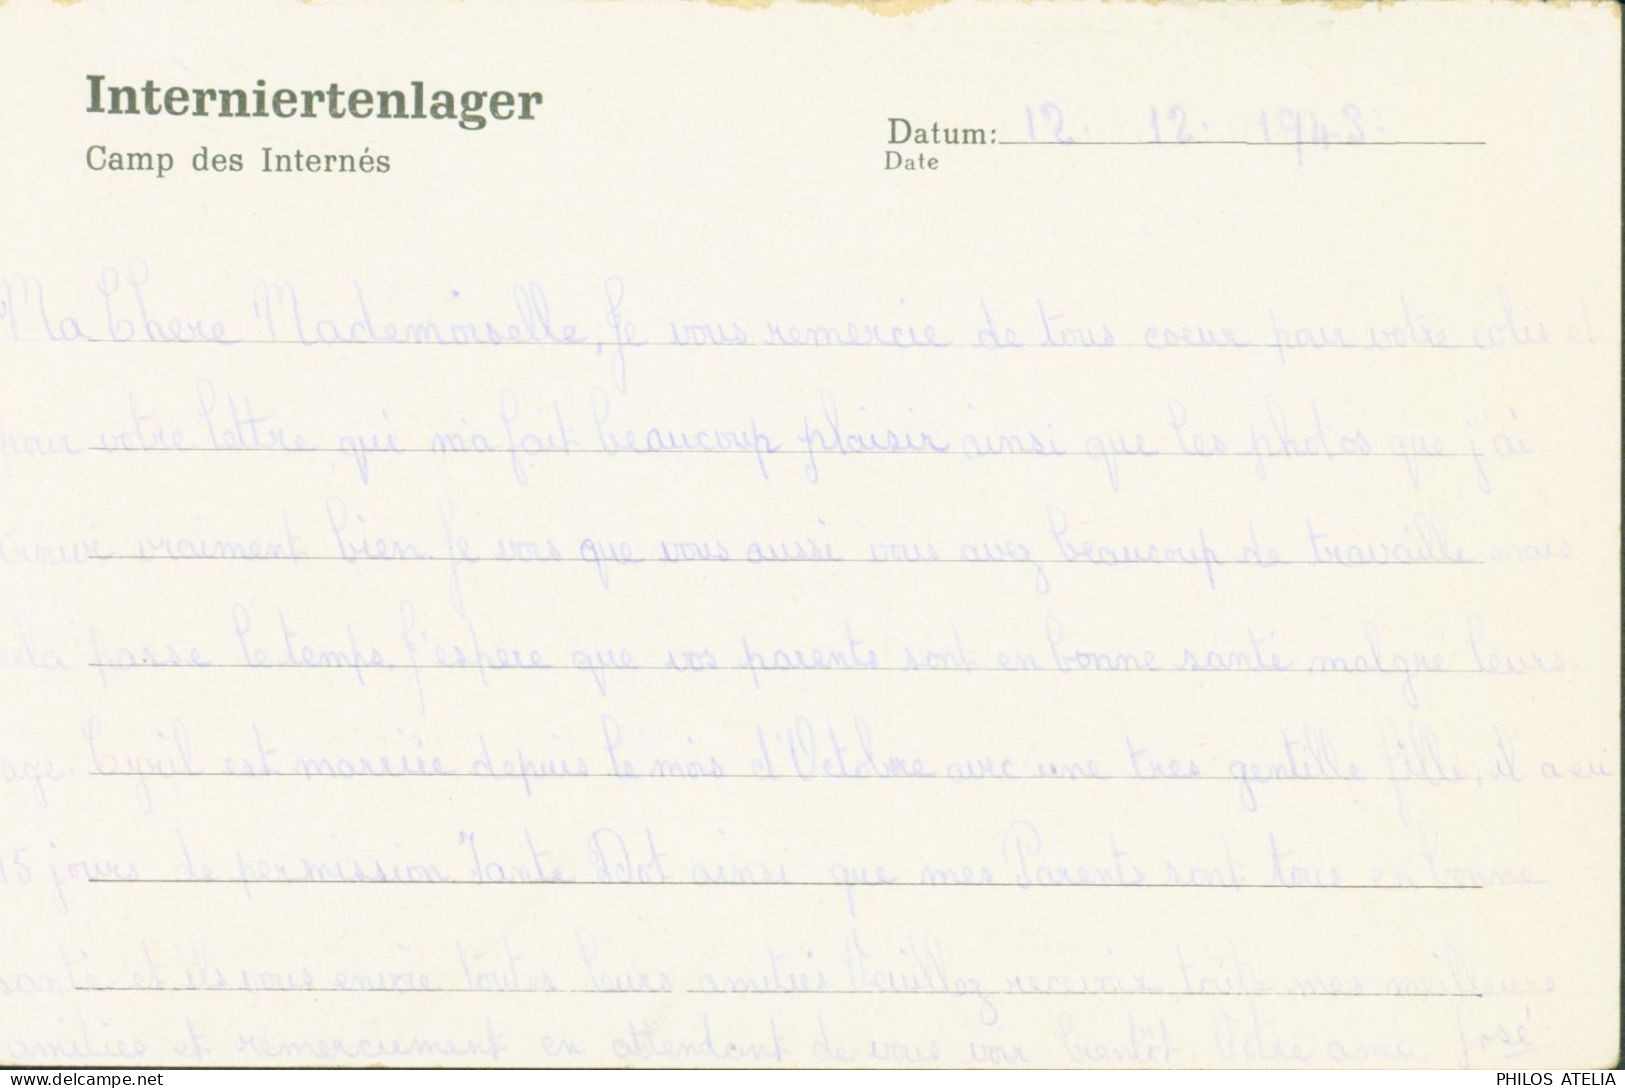 Interniertenlager
Camp des Internés
Datum: 12. 12. 1943.
Date
Ma Chere Mademoiselle, Je vous remercie de tous coeur pour votre colis et
pour votre lettre qui m'a fait beaucoup plaisir ainsi que les photos que j'ai
vraiment bien. Je vois que vous aussi vous avez beaucoup de travaille mais
cela passe le temps. J'espere que vos parents sont en bonne santé malgré leurs
age. Cyril est marriée depuis le mois d'Octobre avec une tres gentille fille, il a eu
15 jours de permission. Tante Dot ainsi que mes Parents sont tous en bonne
santé et ils vous envoie toutes leurs amities Veuillez recevoir toute mes meilleurs
amities et remerciement en attendant de vous voir bientôt. Votre ami. José
PHILOS ATELIA